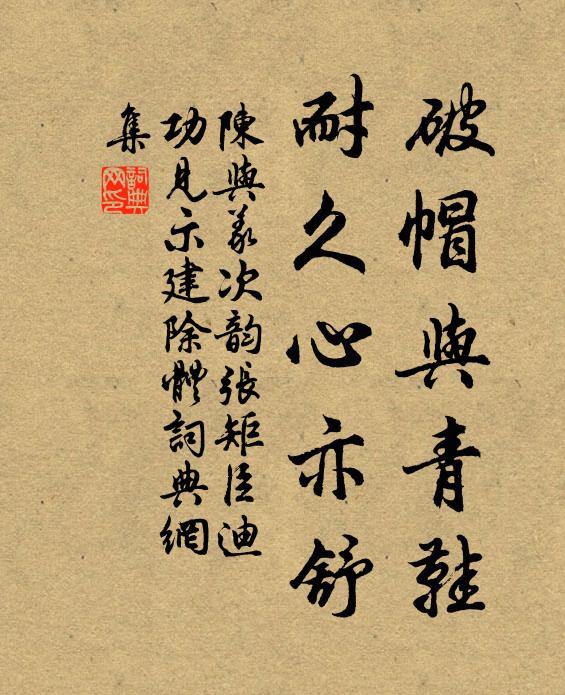 破帽與青鞋
耐久心亦舒
陳與義次韵張矩臣迪
功見示建除體詞典網
集
詞典
网印